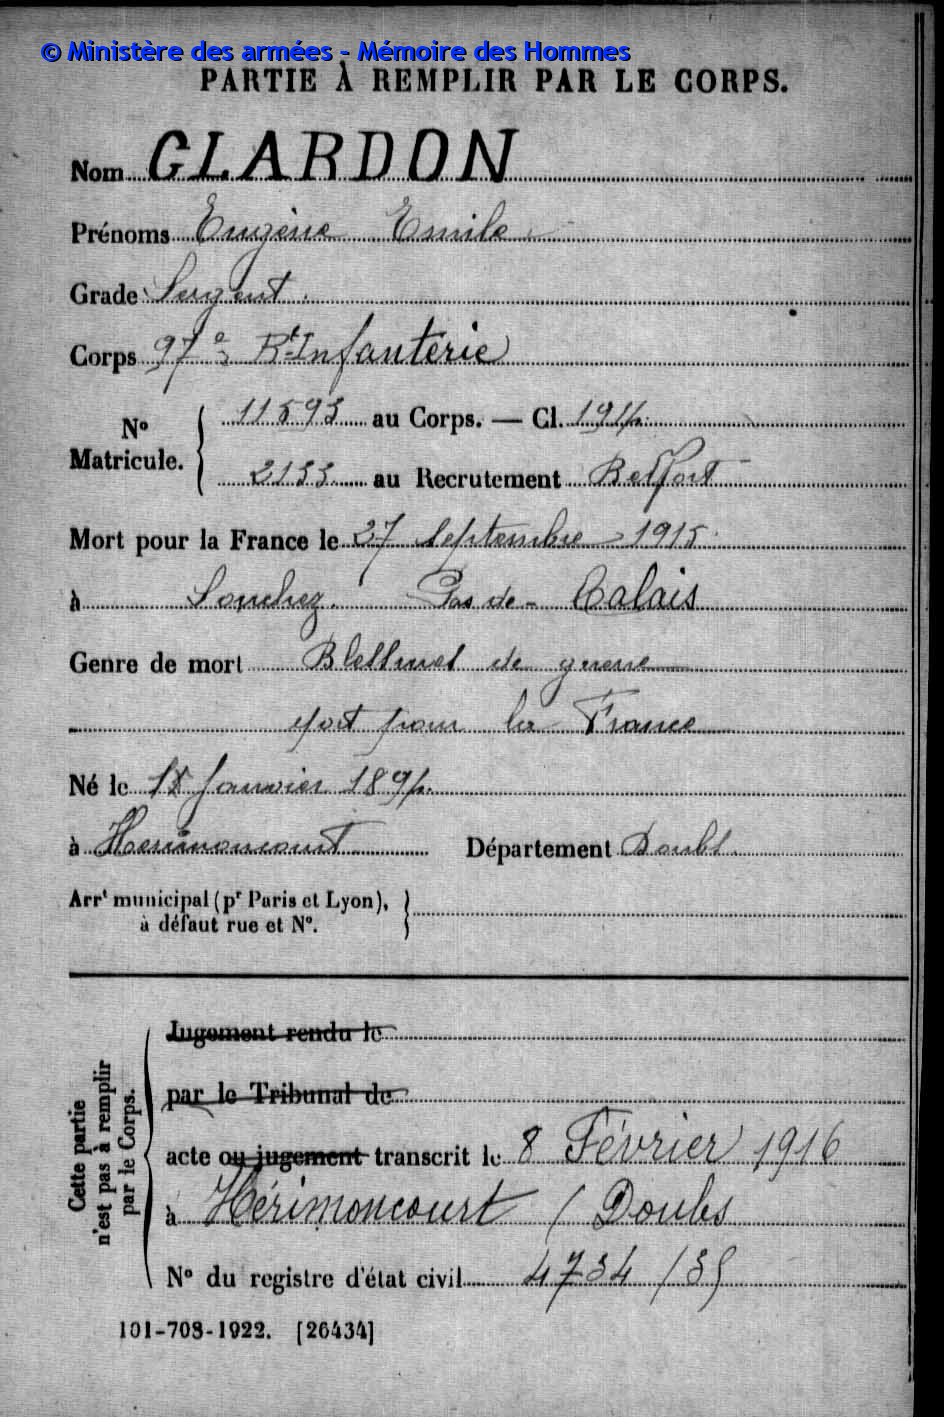 © Ministère des armées - Mémoire des Hommes
PARTIE À REMPLIR PAR LE CORPS.
Nom GLARDON
Prénoms Eugène Emile
Grade Sergent.
Corps 97e Rt Infanterie
No Matricule. 11593 au Corps. — Cl. 1914
2133 au Recrutement Belfort
Mort pour la France le 27 Septembre 1915
à Souchez. Pas-de-Calais
Genre de mort Blessures de guerre
Mort pour la France
Né le Janvier 1894
à Herimoncourt Département Doubs
Arrt municipal (pr Paris et Lyon),
à défaut rue et No.
Cette partie
n'est pas à remplir
par le Corps.
Jugement rendu le
par le Tribunal de
acte ou jugement transcrit le 8 Février 1916
à Hérimoncourt / Doubs
No du registre d'état civil 4734 /35
101-708-1922. [26434]